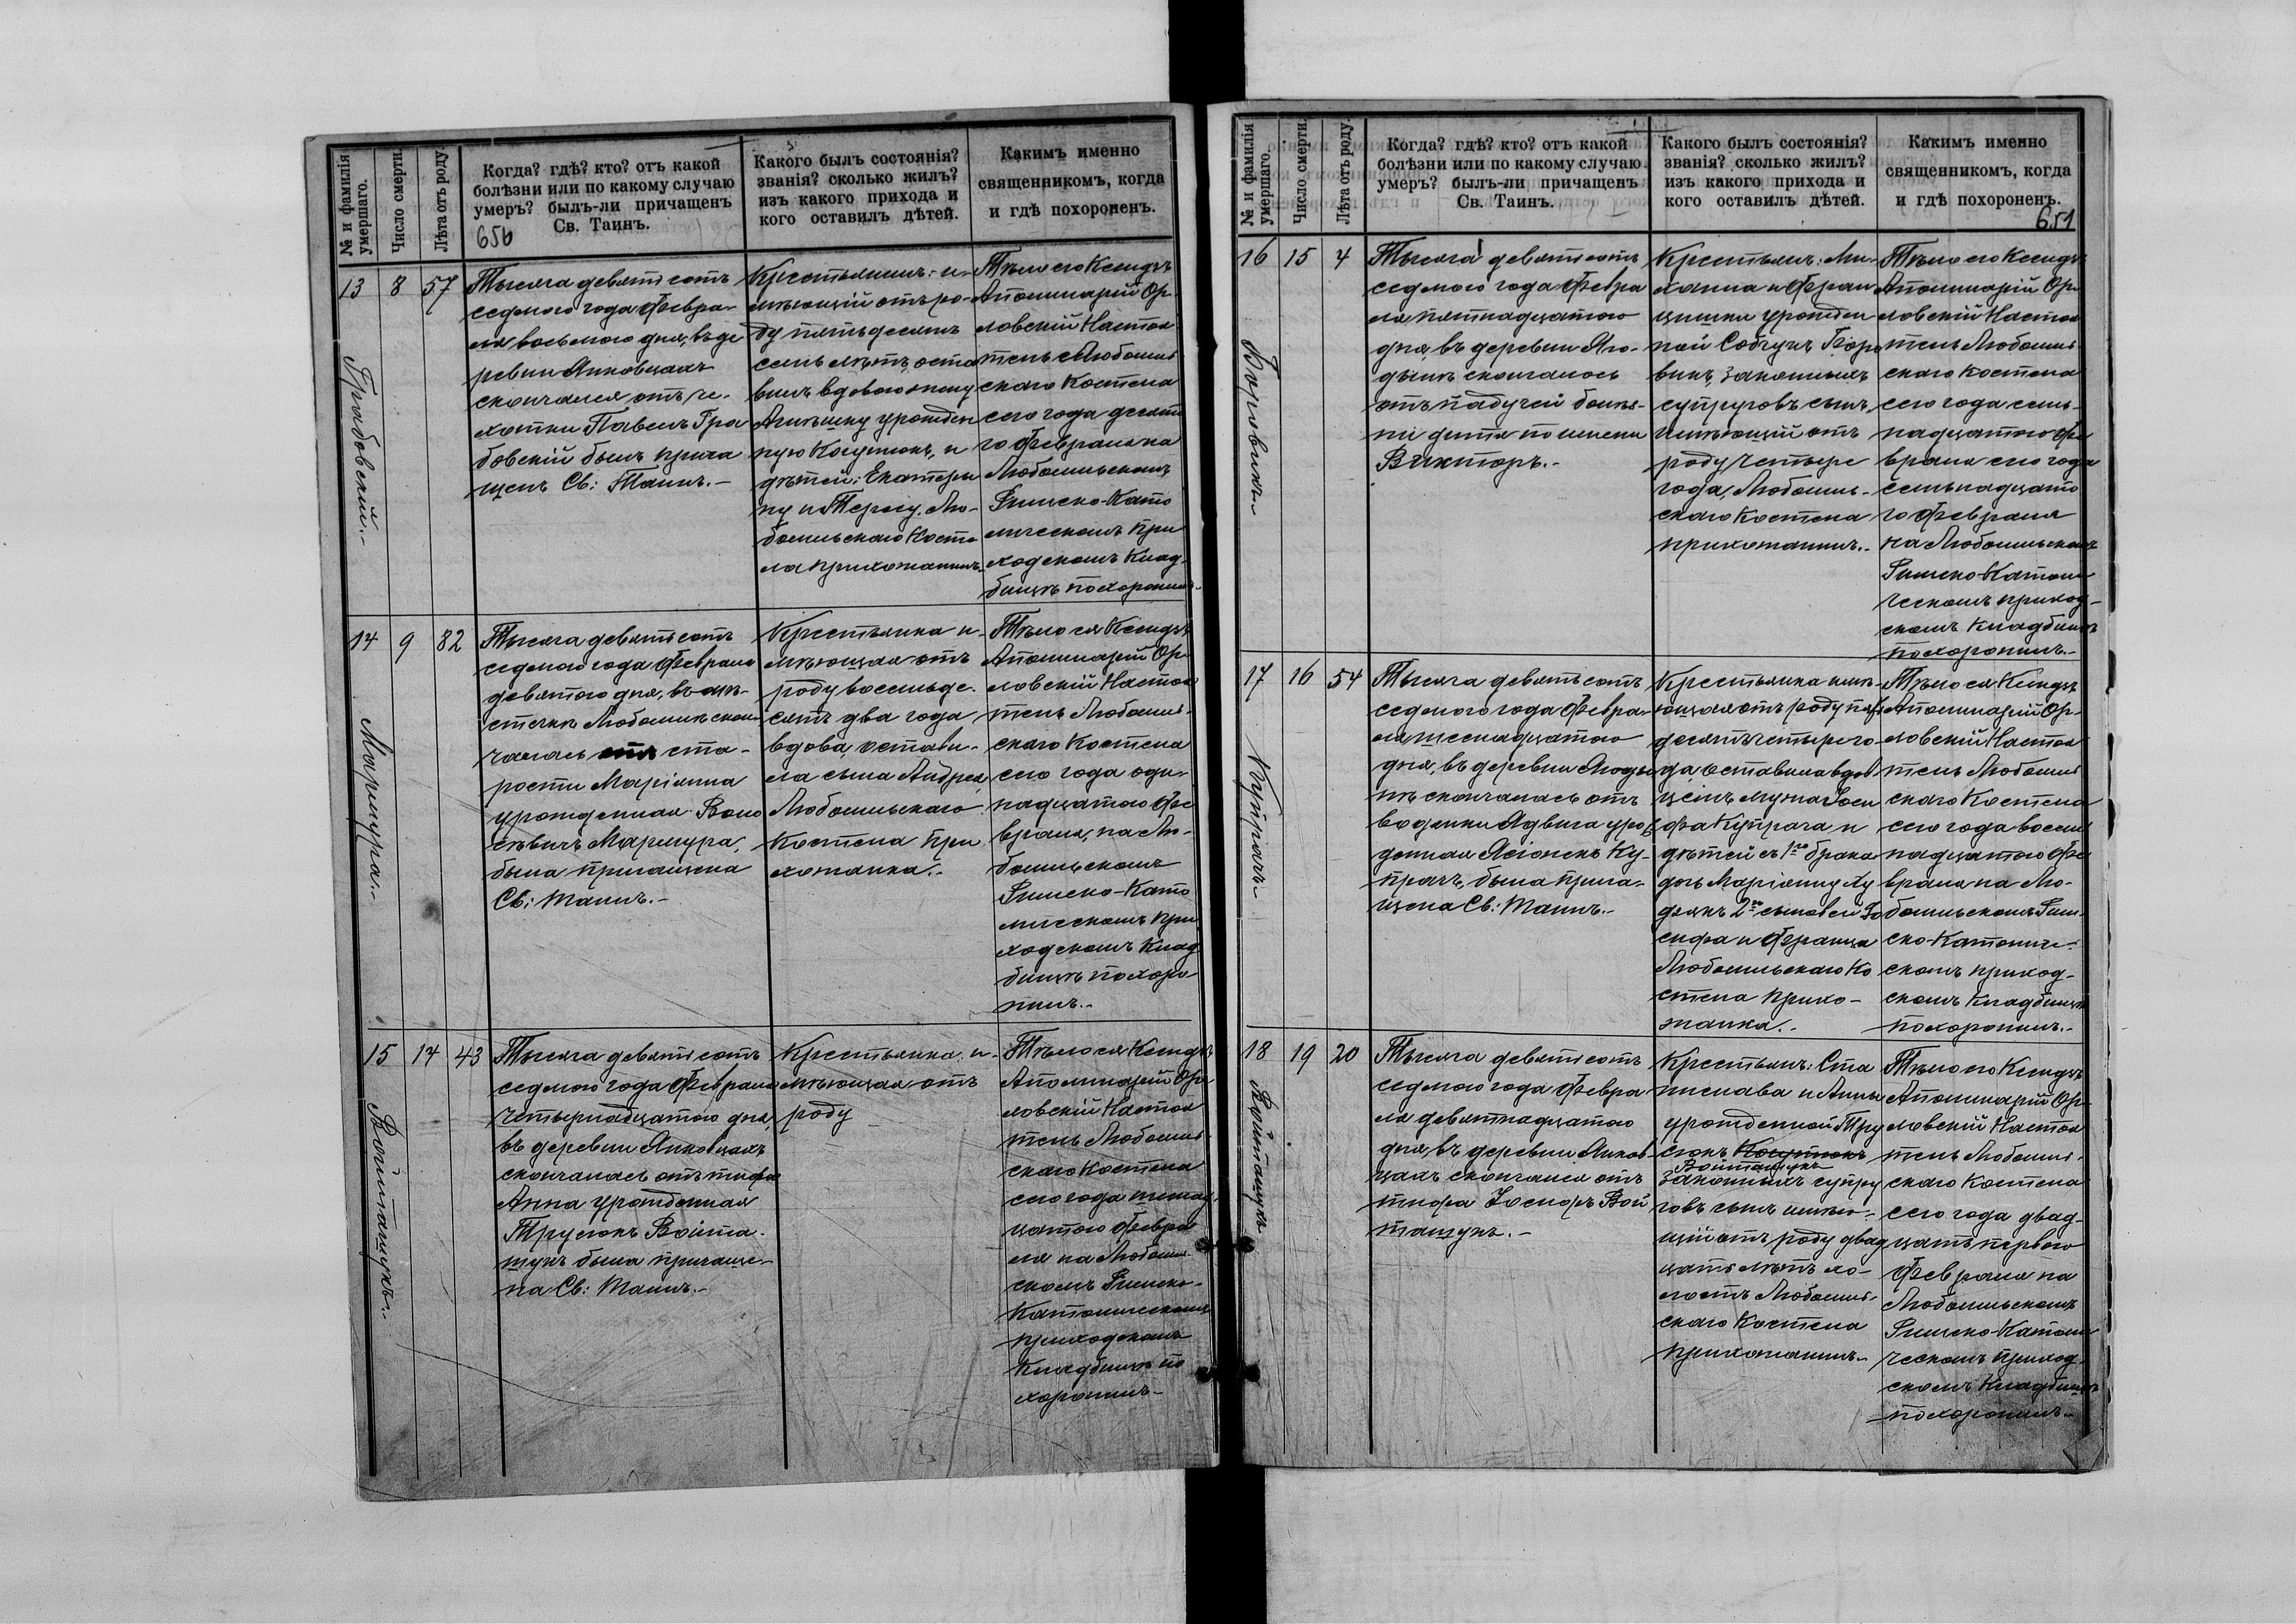 № и фамилія умершаго.
Число смерти.
Лѣта отъ роду.
Когда? гдѣ? кто? отъ какой
болѣзни или по какому случаю
умеръ? былъ-ли причащенъ
Св. Таинъ.
Какого былъ состоянія?
званія? сколько жилъ?
изъ какого прихода и
кого оставилъ дѣтей.
Какимъ именно
священникомъ, когда
и гдѣ похороненъ.
650
13
8
57
Грабовскій.-
Тысяча девятьсотъ
седмого года Февра-
ля восьмого дня, въ де
ревни Янковцахъ
скончался отъ че-
хотки Павелъ Гра
бовскій былъ прича
щенъ Св: Таинъ.-
Крестьянинъ: и-
мѣющій отъ ро-
ду пятьдесятъ
семь лѣтъ, оста
вилъ вдовою жену
урожден
ную и
дѣтей: Екатери
ну и Тересу. Лю-
бомльскаго Косте
ла прихожанинъ.-
Тѣло его Ксендзъ
Аполинарій Ор-
ловскій Настоя
тель Любомль
скаго Костела
сего года десята
го Февраля на
Любомльскомъ
Римско-Като
лическомъ При
ходскомъ Клад-
бищѣ похоронилъ.-
14
9
82
Маршура.-
Тысяча девятьсотъ
седмого года Февраля
девятого дня, въ мѣ-
стечкѣ Любомлѣ скон-
чалась отъ ста-
рости Маріанна
урожденная
Маршура,
была причащена
Св: Таинъ.-
Крестьянка и-
мѣющая отъ
роду восемьде-
сятъ два года
вдова, остави-
ла сына Андрея,
Любомльскаго
Костела при
хожанка.-
Тѣло ея Ксендзъ
Аполинарій Ор-
ловскій Настоя
тель Любомль-
скаго Костела
сего года оди-
надцатого Фе
враля, на Лю-
бомльскомъ
Римско-Като
лическомъ При
ходскомъ Клад
бищѣ похоро-
нилъ.-
15
14
43
Войташукъ.-
Тысяча девятьсотъ
седмого года Февраля
четырнадцатого дня,
въ деревни Янковцахъ
скончалась отъ тифа
Анна урожденная
Трусюкъ Войта-
шукъ была причаще-
на Св: Таинъ.-
Крестьянка: и-
мѣющая отъ
роду
Тѣло ея Ксендзъ
Аполинарій Ор-
ловскій Настоя
тель Любомль-
скаго Костела
сего года шестнад
цатого Февра
ля на Любомль-
скомъ Римско-
Католическомъ
приходскомъ
Кладбищѣ по
хоронилъ-
№ и фамилія умершаго.
Число смерти.
Лѣта отъ роду.
Когда? гдѣ? кто? отъ какой
болѣзни или по какому случаю
умеръ? былъ-ли причащенъ
Св. Таинъ.
Какого былъ состоянія?
званія? сколько жилъ?
изъ какого прихода и
кого оставилъ дѣтей.
Какимъ именно
священникомъ, когда
и гдѣ похороненъ.
651
16
15
4
Боровикъ.-
Тысяча девятьсотъ
седмого года Февра
ля пятнадцатого
дня, въ деревни
скончалось
отъ падучей болѣз-
ни дитя по имени
Викторъ.-
Крестьянъ: Ми-
хаила и Фран
цишки урожден
ной Собчукъ Боро
викъ, законныхъ
супруговъ сынъ,
имѣющій отъ
роду четыре
года, Любомль-
скаго Костела
прихожанинъ.-
Тѣло его Ксендзъ
Аполинарій Ор-
ловскій Настоя
тель Любомль
скаго Костела
сего года семь-
надцатого Фе
враля сего года
семьнадцато
го Февраля
на Любомльскомъ
Римско-Католи
ческомъ приход-
скомъ кладбищѣ
похоронилъ.-
17
16
54
Купрачъ.-
Тысяча девятьсотъ
седмого года Февра-
ля шеснадцатого
дня, въ деревни
скончалась отъ
водянки Ядвига уро
жденная Ку-
прачъ, была прича-
щена Св: Таинъ.-
Крестьянка имѣ-
ющая отъ роду пять
десятъ четыре го-
да, оставила вдов-
цемъ мужа Іоси
фа Купрача и
дѣтей съ 1го брака
дочь Маріянну
2го сыновей Іо
сифа и Франца
Любомльскаго Ко
стела прихо-
жанка.-
Тѣло ея Ксендзъ
Аполинарій Ор-
ловскій Настоя
тель Любомль
скаго Костела
сего года восем
надцатого Фе
враля на Лю-
бомльскомъ Рим-
ско-Католиче-
скомъ приход-
скомъ кладбищѣ
похоронилъ.-
18
19
20
Войташукъ.
Тысяча девятьсотъ
седмого года Февра
ля девятнадцатого
дня, въ деревни Янков-
цахъ скончался отъ
тифа Іосифъ Вой
ташукъ.-
Крестьянъ: Ста
нислава и Анны
урожденной Тру
сюкъ
Войташукъ
законныхъ супру
говъ сынъ имѣю-
щій отъ роду двад
цать лѣтъ хо-
лостъ Любомль-
скаго Костела
прихожанинъ.-
Тѣло го Ксендзъ
Аполинарій Ор-
ловскій Настоя
тель Любомль-
скаго Костела
сего года двад-
цать первого
Февраля на
Любомльскомъ
Римско-Католи
ческомъ приход-
скомъ Кладбищѣ
похоронилъ.-